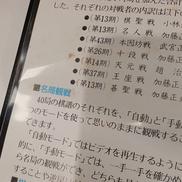 した。それぞれの対戦者の内訳は以下
●第13期 棋聖戦 小林
●第13期 名人戦 加藤正
●第43期 本因坊戦 武宮正
●第26期 十段戦 加藤正
●第14期 天元戦 趙治
●第37期 王座戦 加藤正
●第14期 碁聖戦 小林
名局観戦
40局の棋譜のそれぞれを、「自動」と「手動
つのモードを使って思いのままに観戦する
きます。
「自動」モードではビデオを再生するように
的に、「手動」モードでは、一手一手を確かめ
ら名局の観戦ができ、どちらも
することも